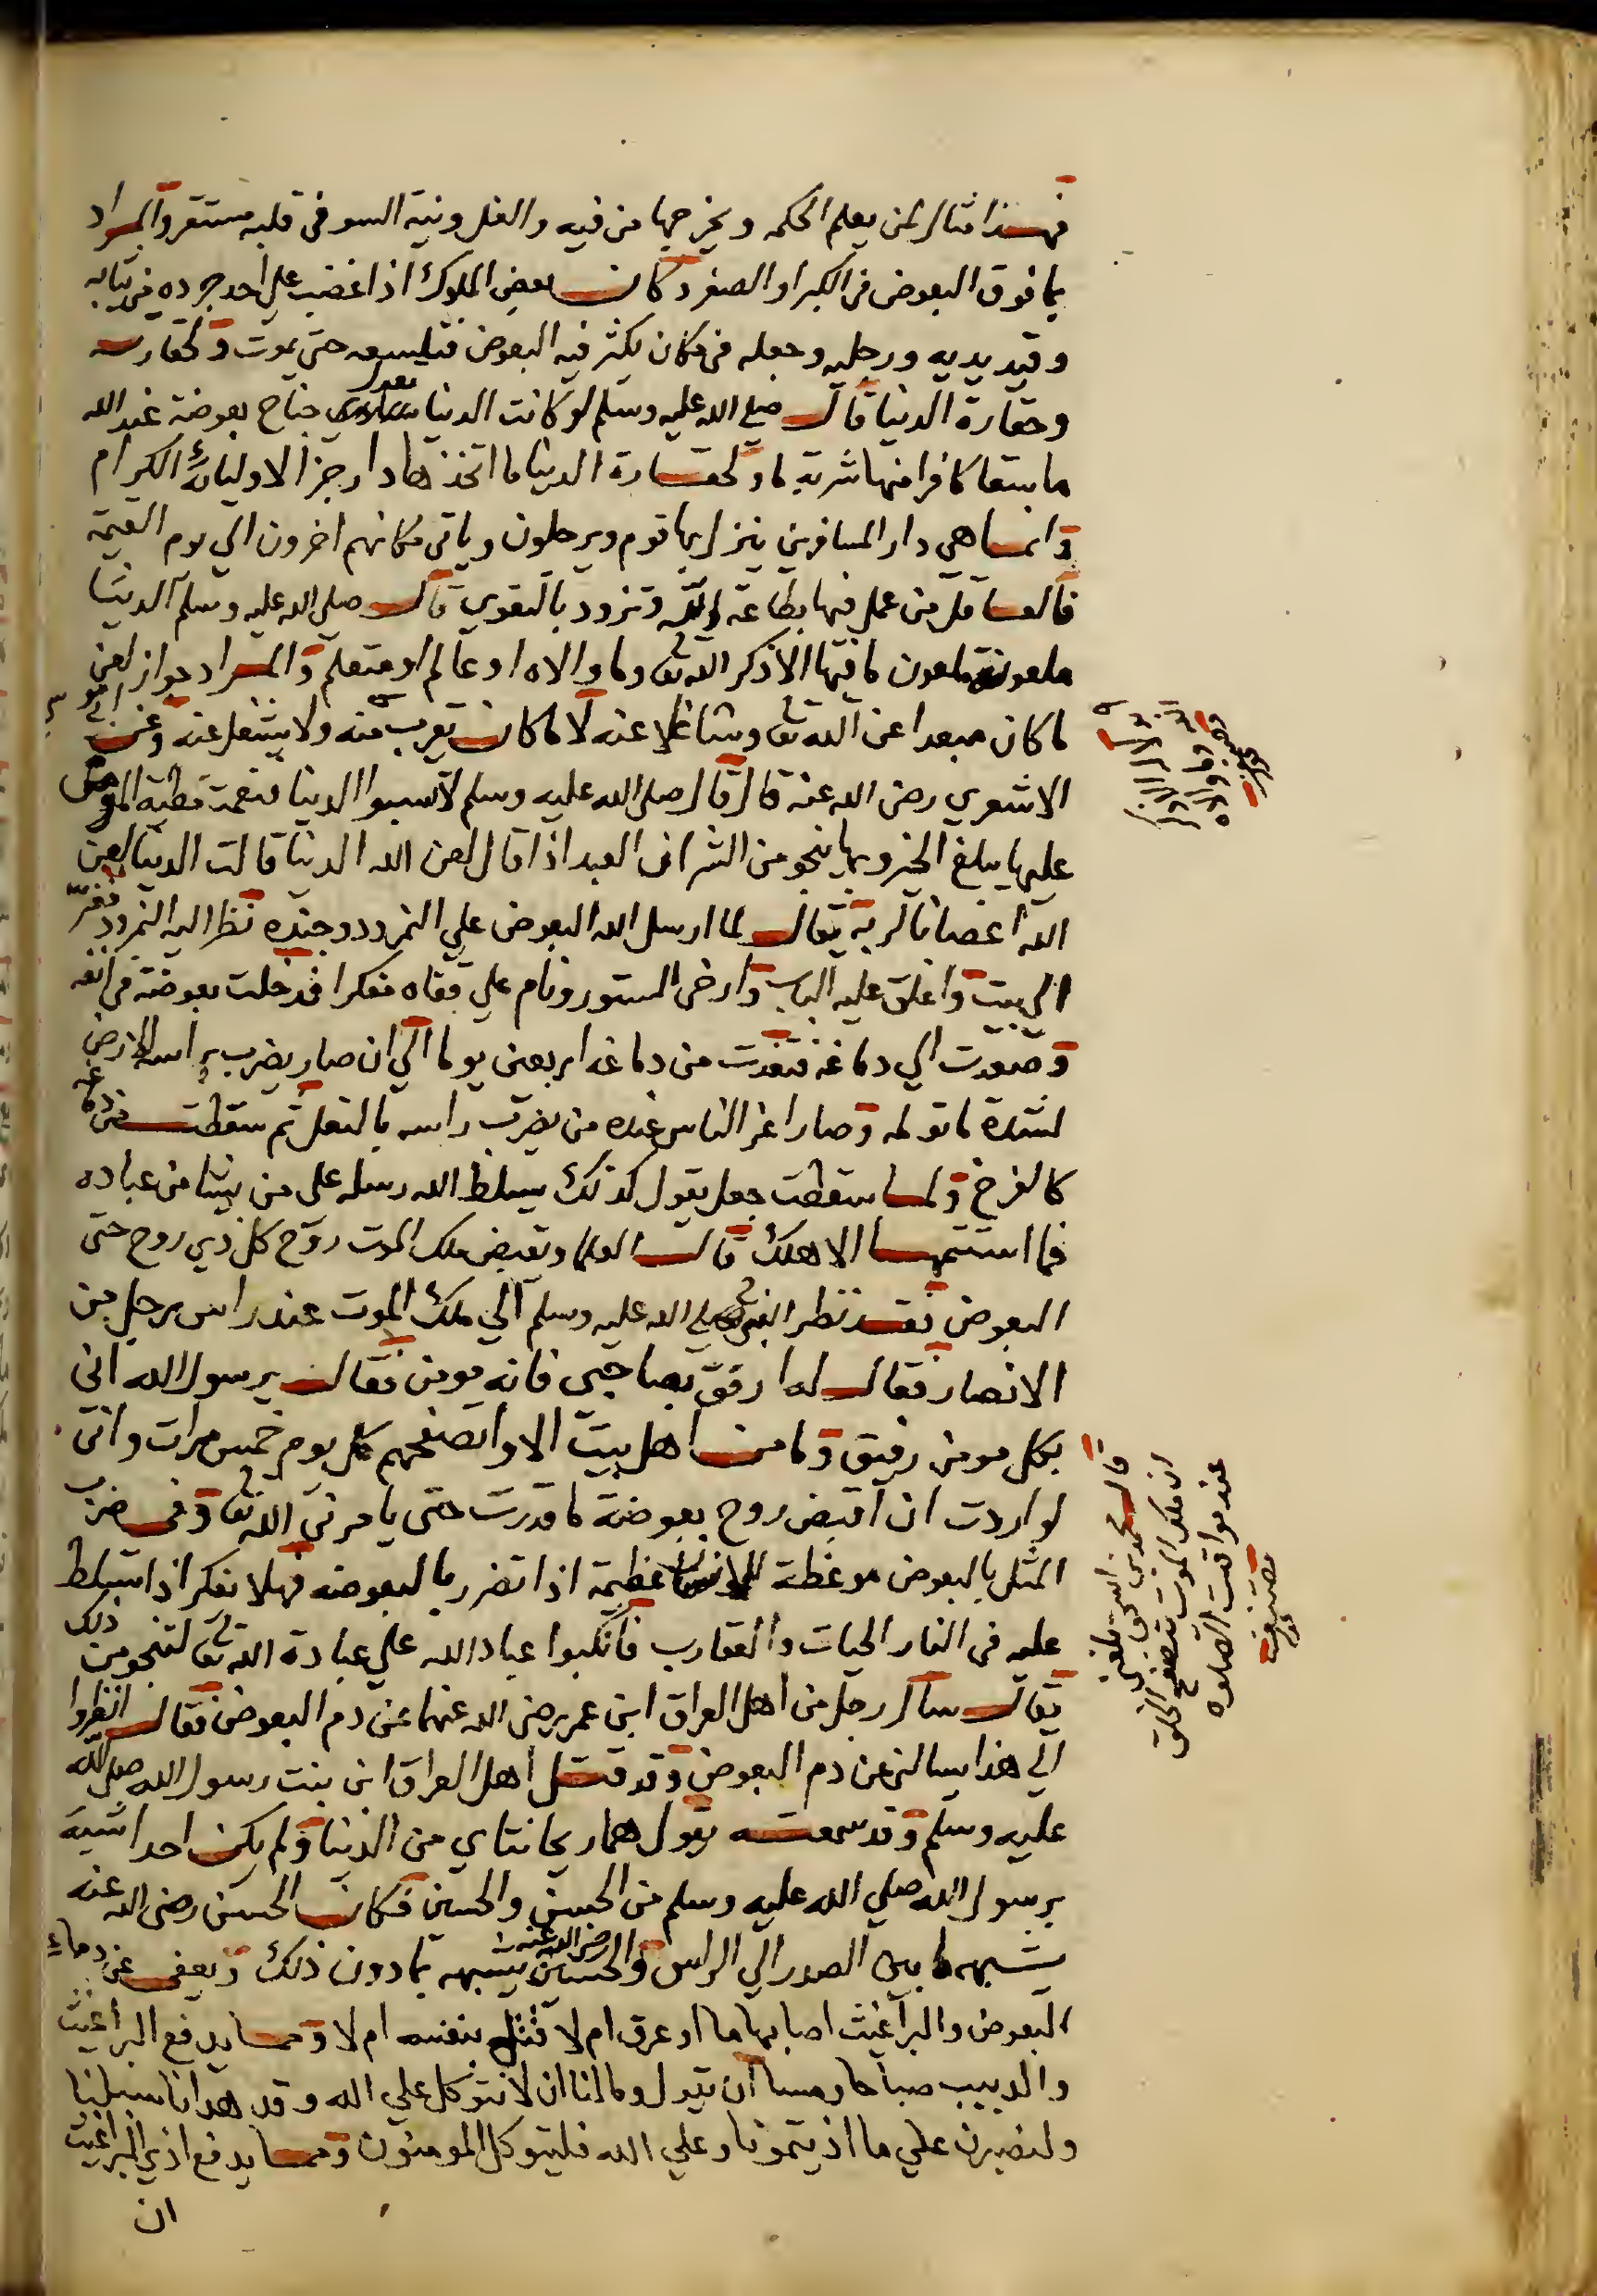 فهذا مثال لمن يعلم الحكمه ويخرجها من فيه والغل ونية السو في قلبه مستقر والمراد
بما فوق البعوض في الكبر او الصغر وكان بعض الملوك اذا غضب علي احد جرده من ثيابه
وقيد يديه ورجليه وجعله في مكان يكثر فيه البعوض فتلسعه حتى يموت ولحقارته
وحقارة الدنيا قال صلي الله عليه وسلم لو كانت الدنيا تعدل جناح بعوضة عند الله
ما سقا كافرا منها شربة ما ولحقارة الدنيا ما اتخذها دار جزا لاوليائه الكرام
وانما هي دار المسافرين ينزل بها قوم ويرحلون وياتي مكانهم اخرون الي يوم القيمة
فالعاقل من عمل فيها بطاعة الله وتزود بالتقوي قال صلي الله عليه وسلم الدنيا
ملعونة ملعون ما فيها الا ذكر الله تعا وما والاه او عالم او متعلم والمراد جواز لعن
ما كان مبعدا عن الله تعا وشاغلا عنه لا ما كان يقرب منه ولا يشغل عنه وعن ابي موسي
الاشعري رضي الله عنه قال قال صلي الله عليه وسلم لا تسبوا الدنيا فنعمت مطية المؤمن
عليها يبلغ الخير وبها ينجو من الشر ان العبد اذا قال لعن الله الدنيا قالت الدنيا لعن
الله اعصانا لربه يقال لما ارسل الله البعوض علي النمرود وجنده نظر اليه النمرود ففر
الي بيت واغلق عليه الباب وارخي الستور ونام علي قفاه مفكرا فدخلت بعوضة في انفه
وصعدت الي دماغه فتغذت من دماغه اربعين يوما الي ان صار يضرب براسه الارض
لشدة ما تولمه وصار اعز الناس عنده من يضرب راسه بالنعل ثم سقطت من دماغه
كالفرخ ولما سقطت جعل يقول كذلك يسلط الله رسله علي من يشا من عباده
فما استتمها الا هلك قال العلما ويقبض ملك الموت روح كل ذي روح حتى
البعوض فقد نظر النبي صلي الله عليه وسلم الي ملك الموت عند راس رجل من
الانصار فقال له ارفق بصاحبي فانه مومن فقال يرسول الله اني
بكل مومن رفيق وما من اهل بيت الا واتصفحهم كل يوم خمس مرات واني
لو اردت ان اقبض روح بعوضة ما قدرت حتى يامرني الله تعا وفي ضرب
المثل بالبعوض موعظة للانسان عظيمة اذا تضرر بالبعوضه فهلا تفكر اذا تسلط
عليه في النار الحيات والعقارب فانكبوا عباد الله علي عبادة الله تعا لتنجو من ذلك
يقال سال رجل من اهل العراق ابن عمر رضي الله عنهما عن دم البعوض فقال انظروا
الي هذا يسالني عن دم البعوض وقد قتل اهل العراق ابن بنت رسول الله صلي الله
عليه وسلم وقد سمعته يقول هما ريحانتاي من الدنيا ولم يكن احد اشبه
برسول الله صلي الله عليه وسلم من الحسن والحسين فكان الحسن رضي الله عنه
يشبهه ما بين الصدر الي الراس والحسين رضي الله عنه يشبهه بما دون ذلك ويعفي عن دماء
البعوض والبراغيث اصابها ما او عرق ام لا قتل بنفسه ام لا ومما يدفع البراغيث
والدبيب صباحا ومسا ان تقول وما لنا ان لا نتوكل علي الله وقد هدانا سبلنا
ولنصبرن علي ما اذيتمونا وعلي الله فليتوكل المومنون ومما يدفع اذي البراغيث
ان
قال
ان ملك الموت يتصفح الخلق
عند مواقيت الصلوه